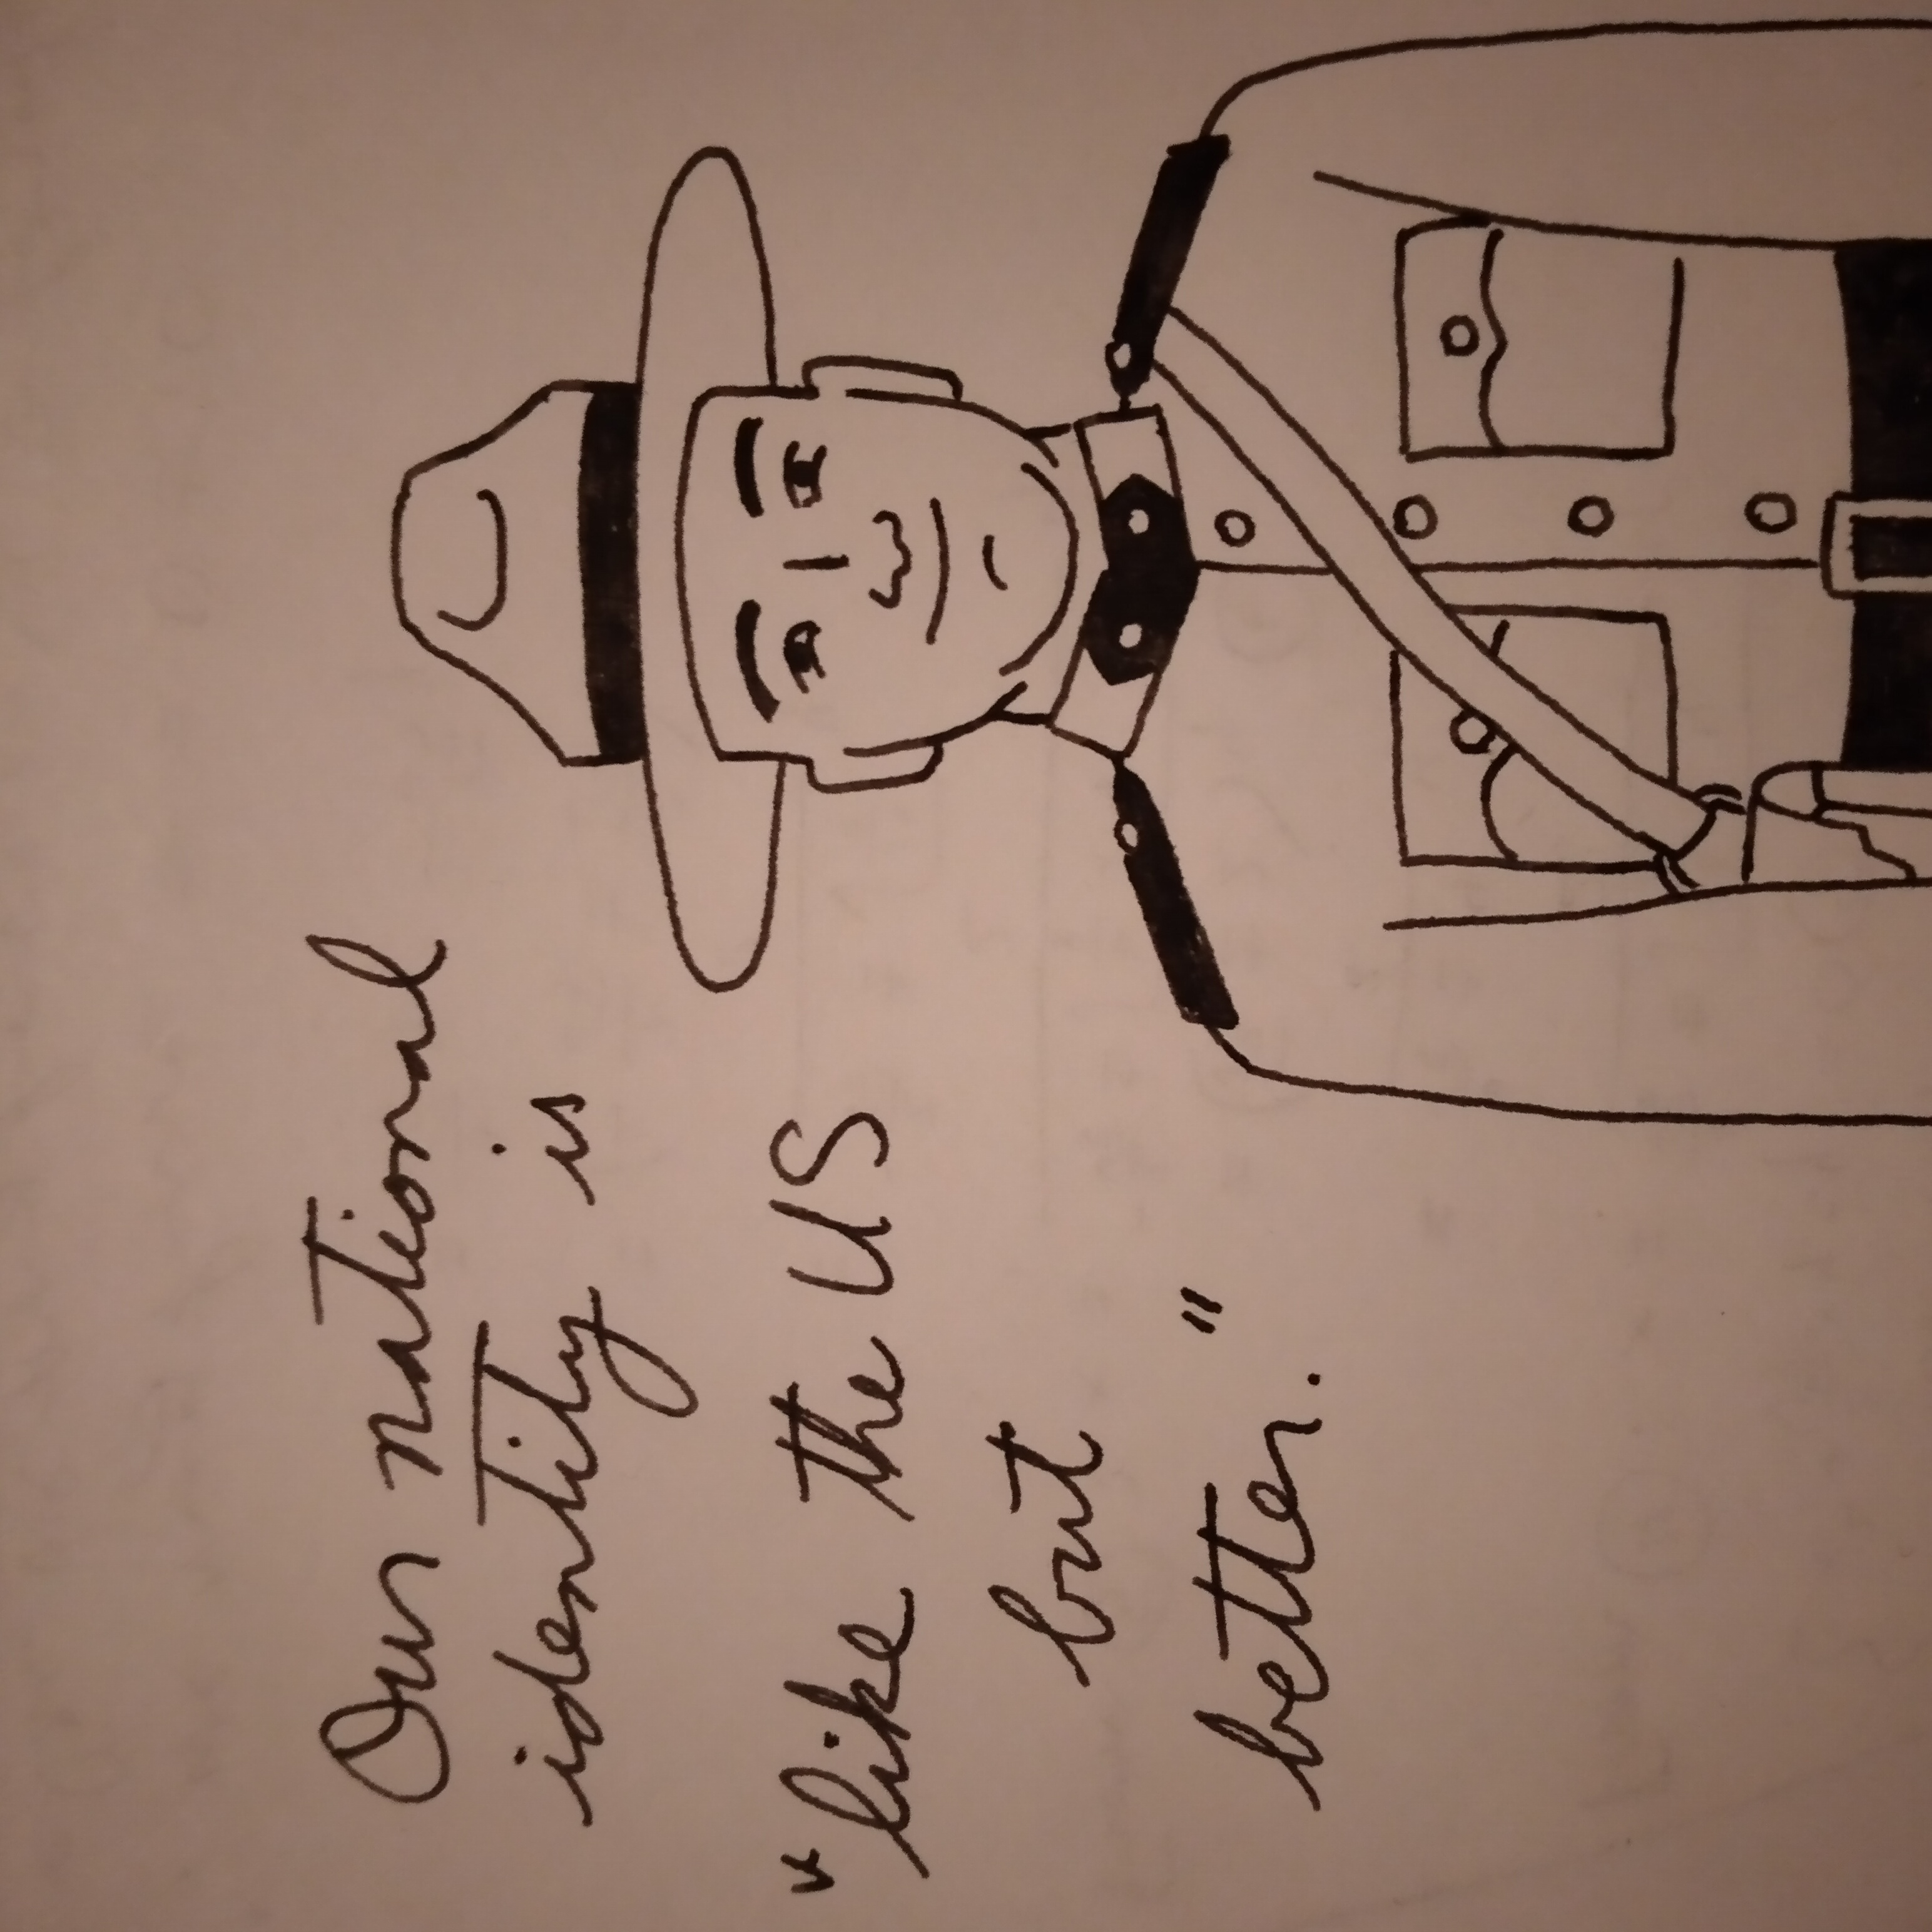 Our national
identity is
"like the US
but
better."